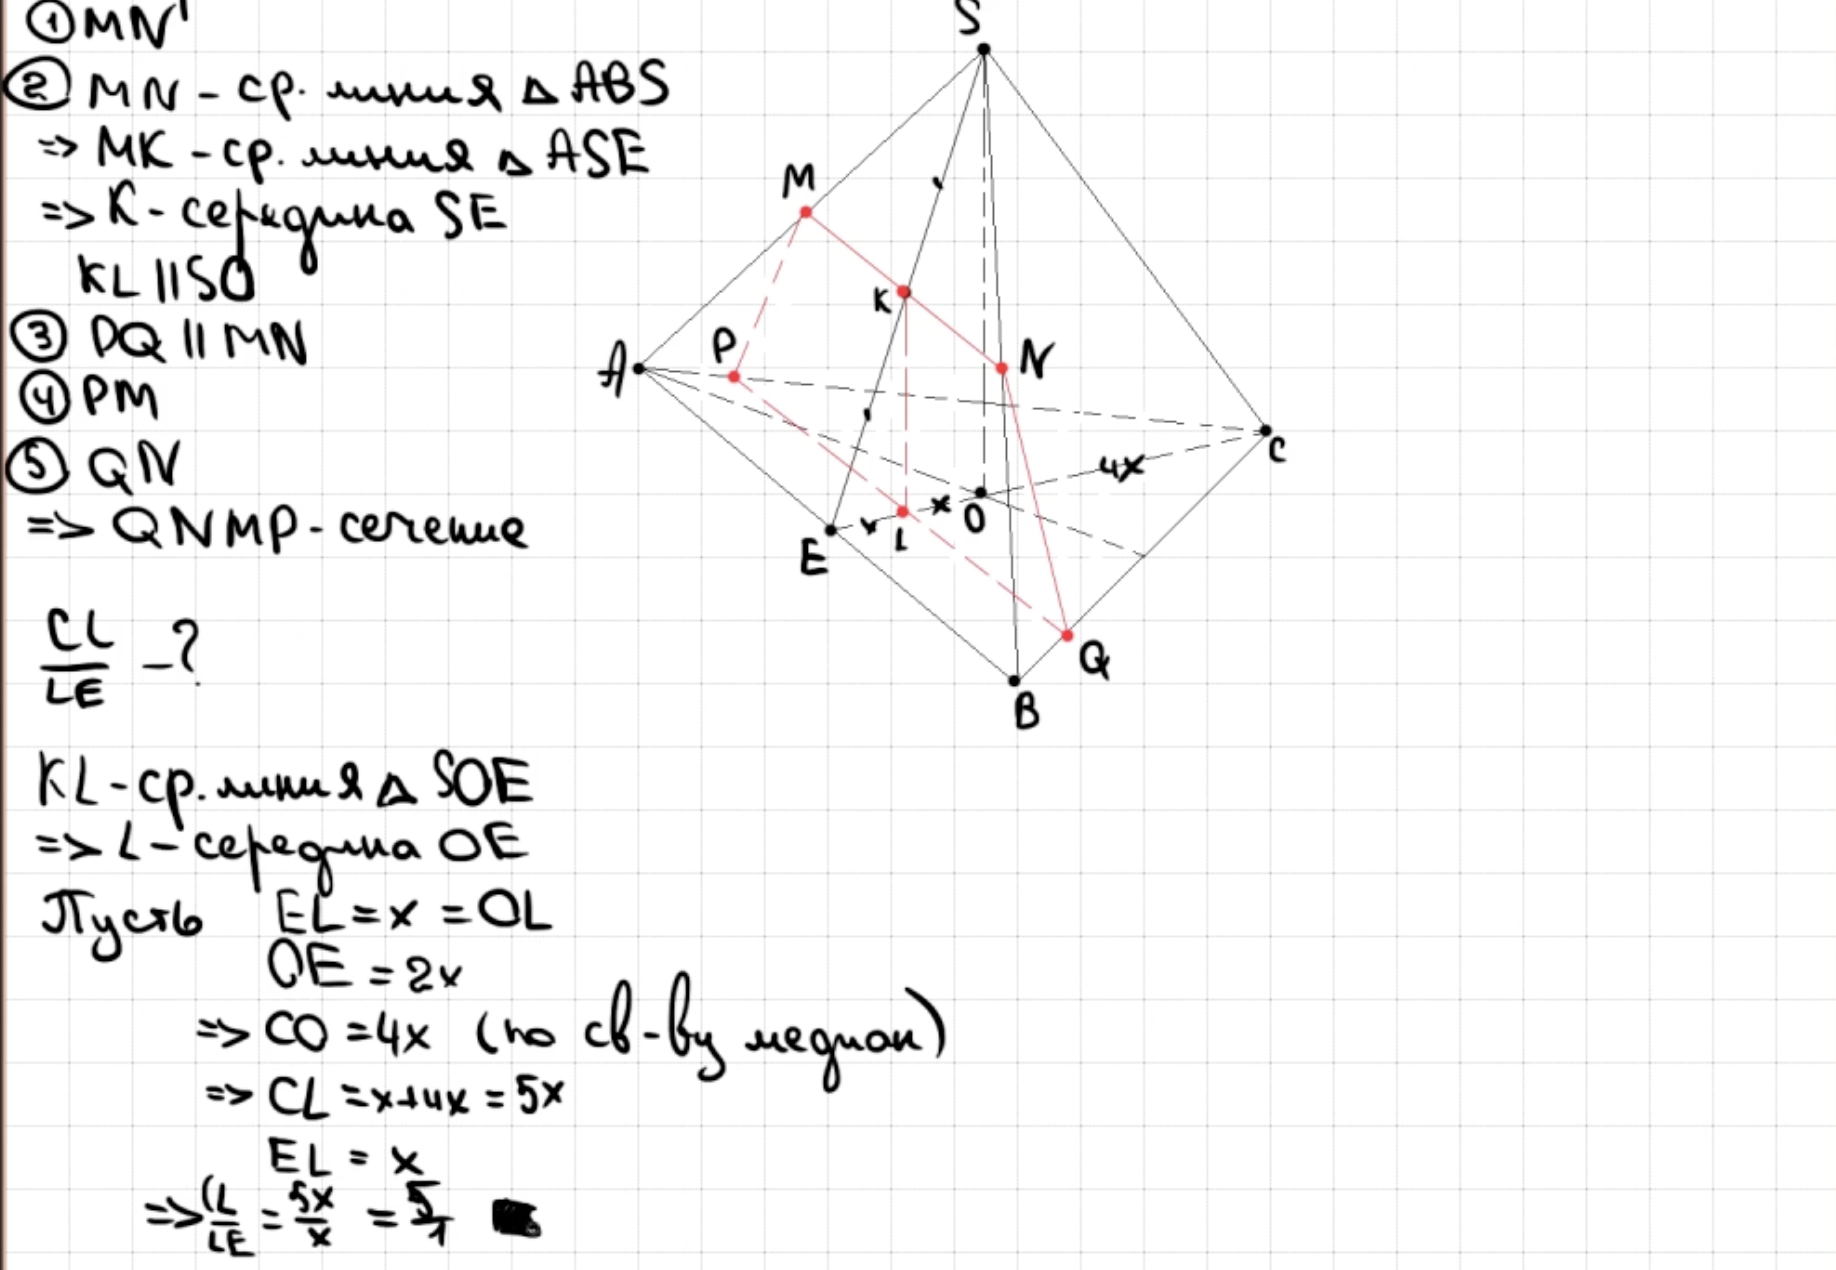 ① MN
② MN - ср. линия △ ABS
=> MK - ср. линия △ ASE
=> K - середина SE
KL || SO
③ PQ || MN
④ PM
⑤ QN
=> QNMP - сечение
CL/LE - ?
KL - ср. линия △ SOE
=> L - середина OE
Пусть EL = x = OL
OE = 2x
=> CO = 4x (по св-ву медиан)
=> CL = x+4x = 5x
EL = x
=> CL/LE = 5x/x = 5/1
S
M
K
P
N
A
4x
C
x
x
O
L
E
Q
B